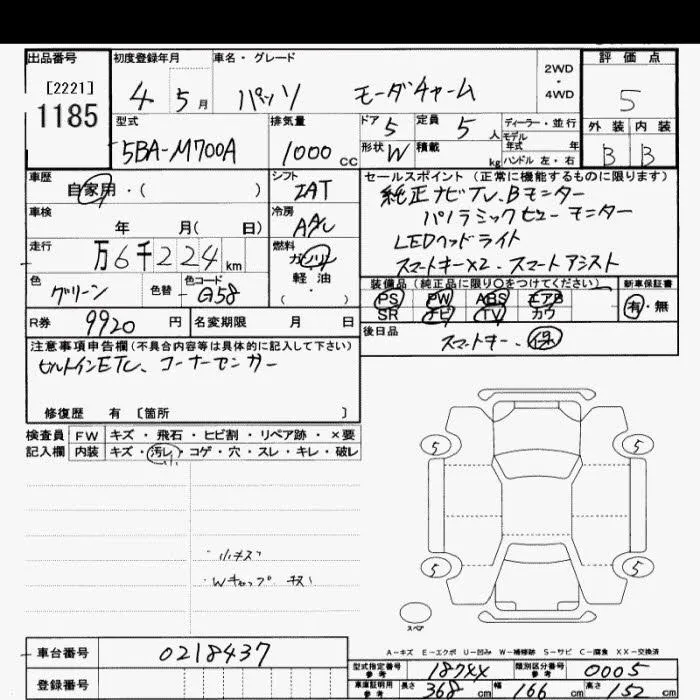 出品番号 初度登録年月 車名・グレード 評価点
[2221] 4 5月 パッソ モーダチャーム 2WD・4WD 5
1185
型式 排気量 ドア 5 定員 5人 ディーラー・並行 外装 内装
5BA-M700A 1000cc 形状 W 積載 kg モデル年式 年 B B
ハンドル 左・右
車歴 シフト セールスポイント(正常に機能するものに限ります)
自家用・( ) IAT 純正ナビTV、Bモニター
車検 冷房 パノラミックビューモニター
年 月( 日) AAC LEDヘッドライト
走行 燃料 スマートキーX2、スマートアシスト
万6千224km ガソリン
軽油
( ・ )
色 色替 色コード 装備品(純正品に限り○をつけてください) 新車保証書
グリーン G58 PS PW ABS エアB 有・無
SR ナビ TV カワ
R券 9920円 名変期限 月 日 後日品
スマートキー、保
注意事項申告欄(不具合内容等は具体的に記入して下さい)
ビルトインETC、コーナーセンサー
修復歴 有 [箇所 ]
検査員 FW キズ・飛石・ヒビ割・リペア跡・×要
記入欄 内装 キズ・汚レ・コゲ・穴・スレ・キレ・破レ
5 5
小キズ
5 5
スペア
A-キズ E-エクボ U-凹み W-補修跡 S-サビ C-腐食 XX-交換済
車台番号 0218437
型式指定番号 参考 18744 類別区分番号 参考 0005
登録番号
車庫証明用 参考 長さ 368cm 幅 166cm 高さ 152cm